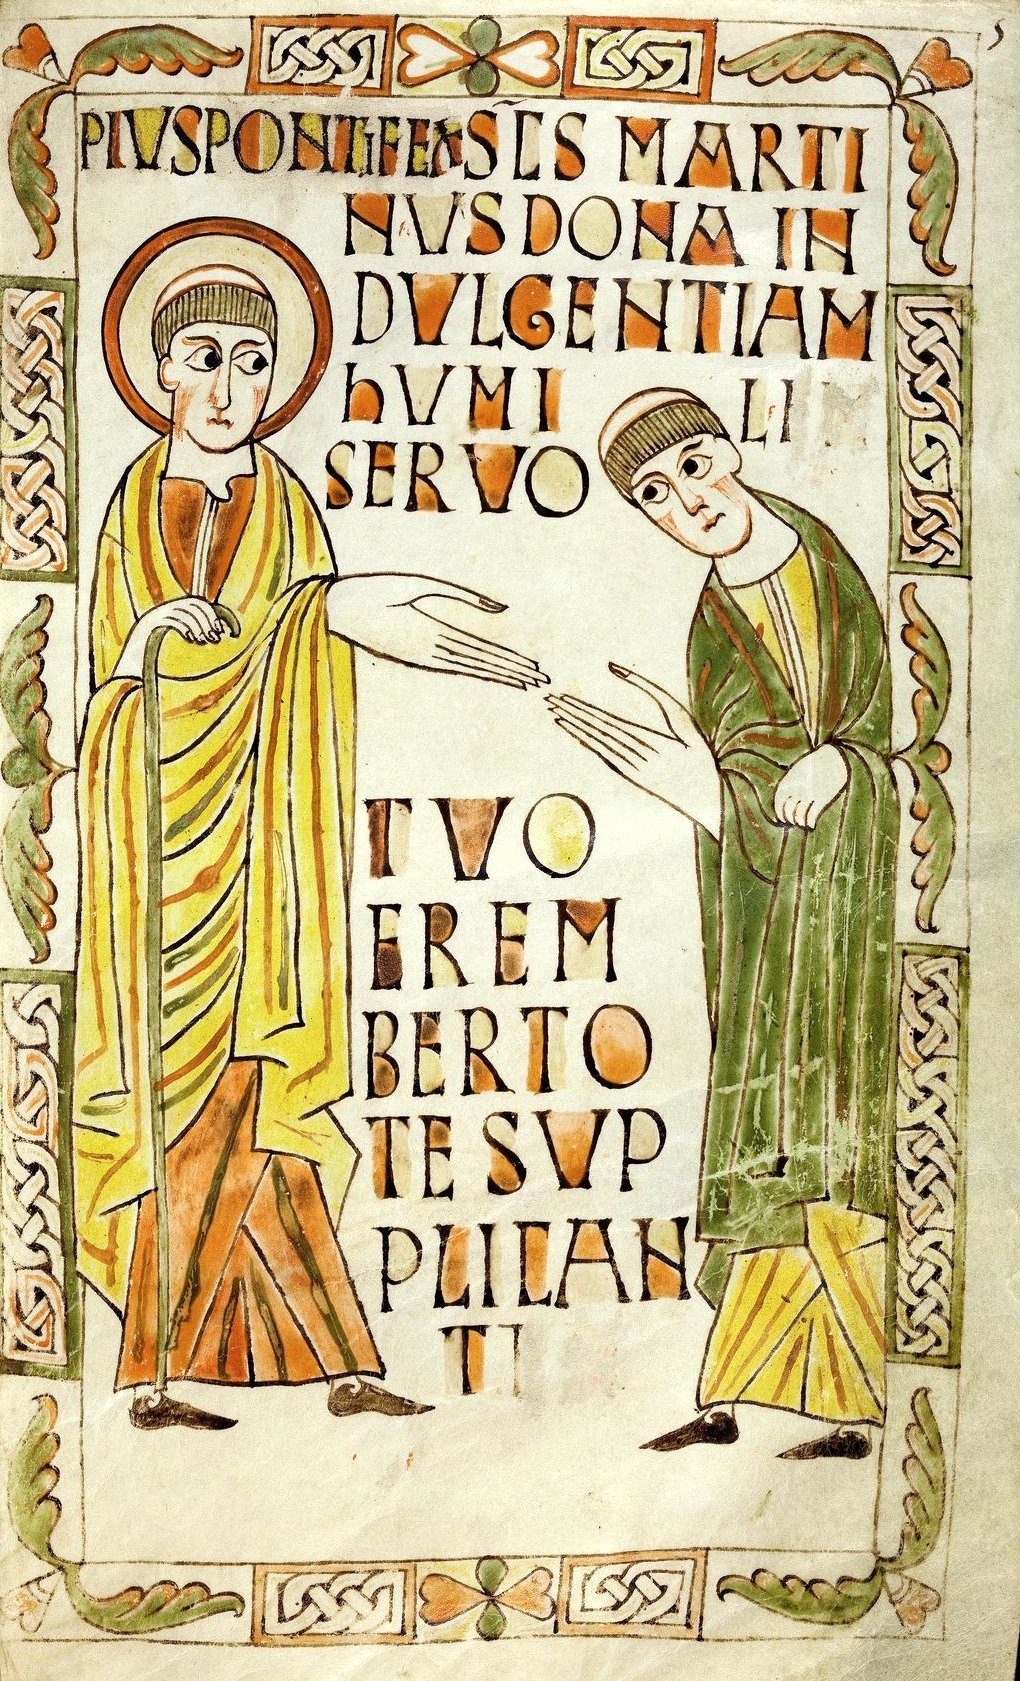 PIVSPONTIFEX SC̄S MARTI
NVS DONA IN
DVLGENTIAM
hVMI LI
SERVO
TVO
EREM
BERTO
TE SVP
PLICAN
TI